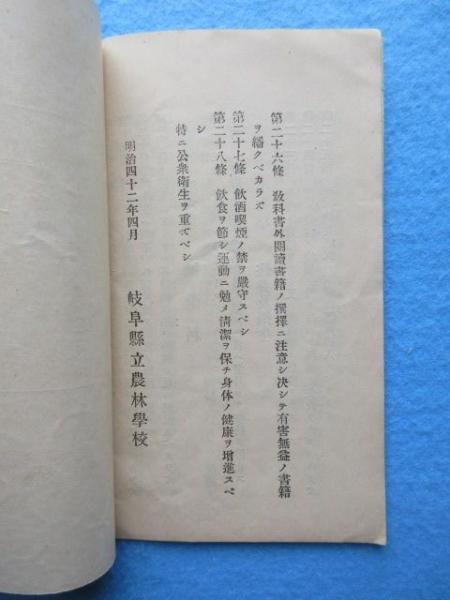 第二十六條 敎科書外閱讀書籍ノ撰擇ニ注意シ决シテ有害無益ノ書籍
ヲ繙クベカラズ
第二十七條 飮酒喫煙ノ禁ヲ嚴守スベシ
第二十八條 飮食ヲ節シ運動ニ勉メ淸潔ヲ保チ身体ノ健康ヲ增進スベ
シ
特ニ公衆衞生ヲ重ズベシ
明治四十二年四月
岐阜縣立農林學校